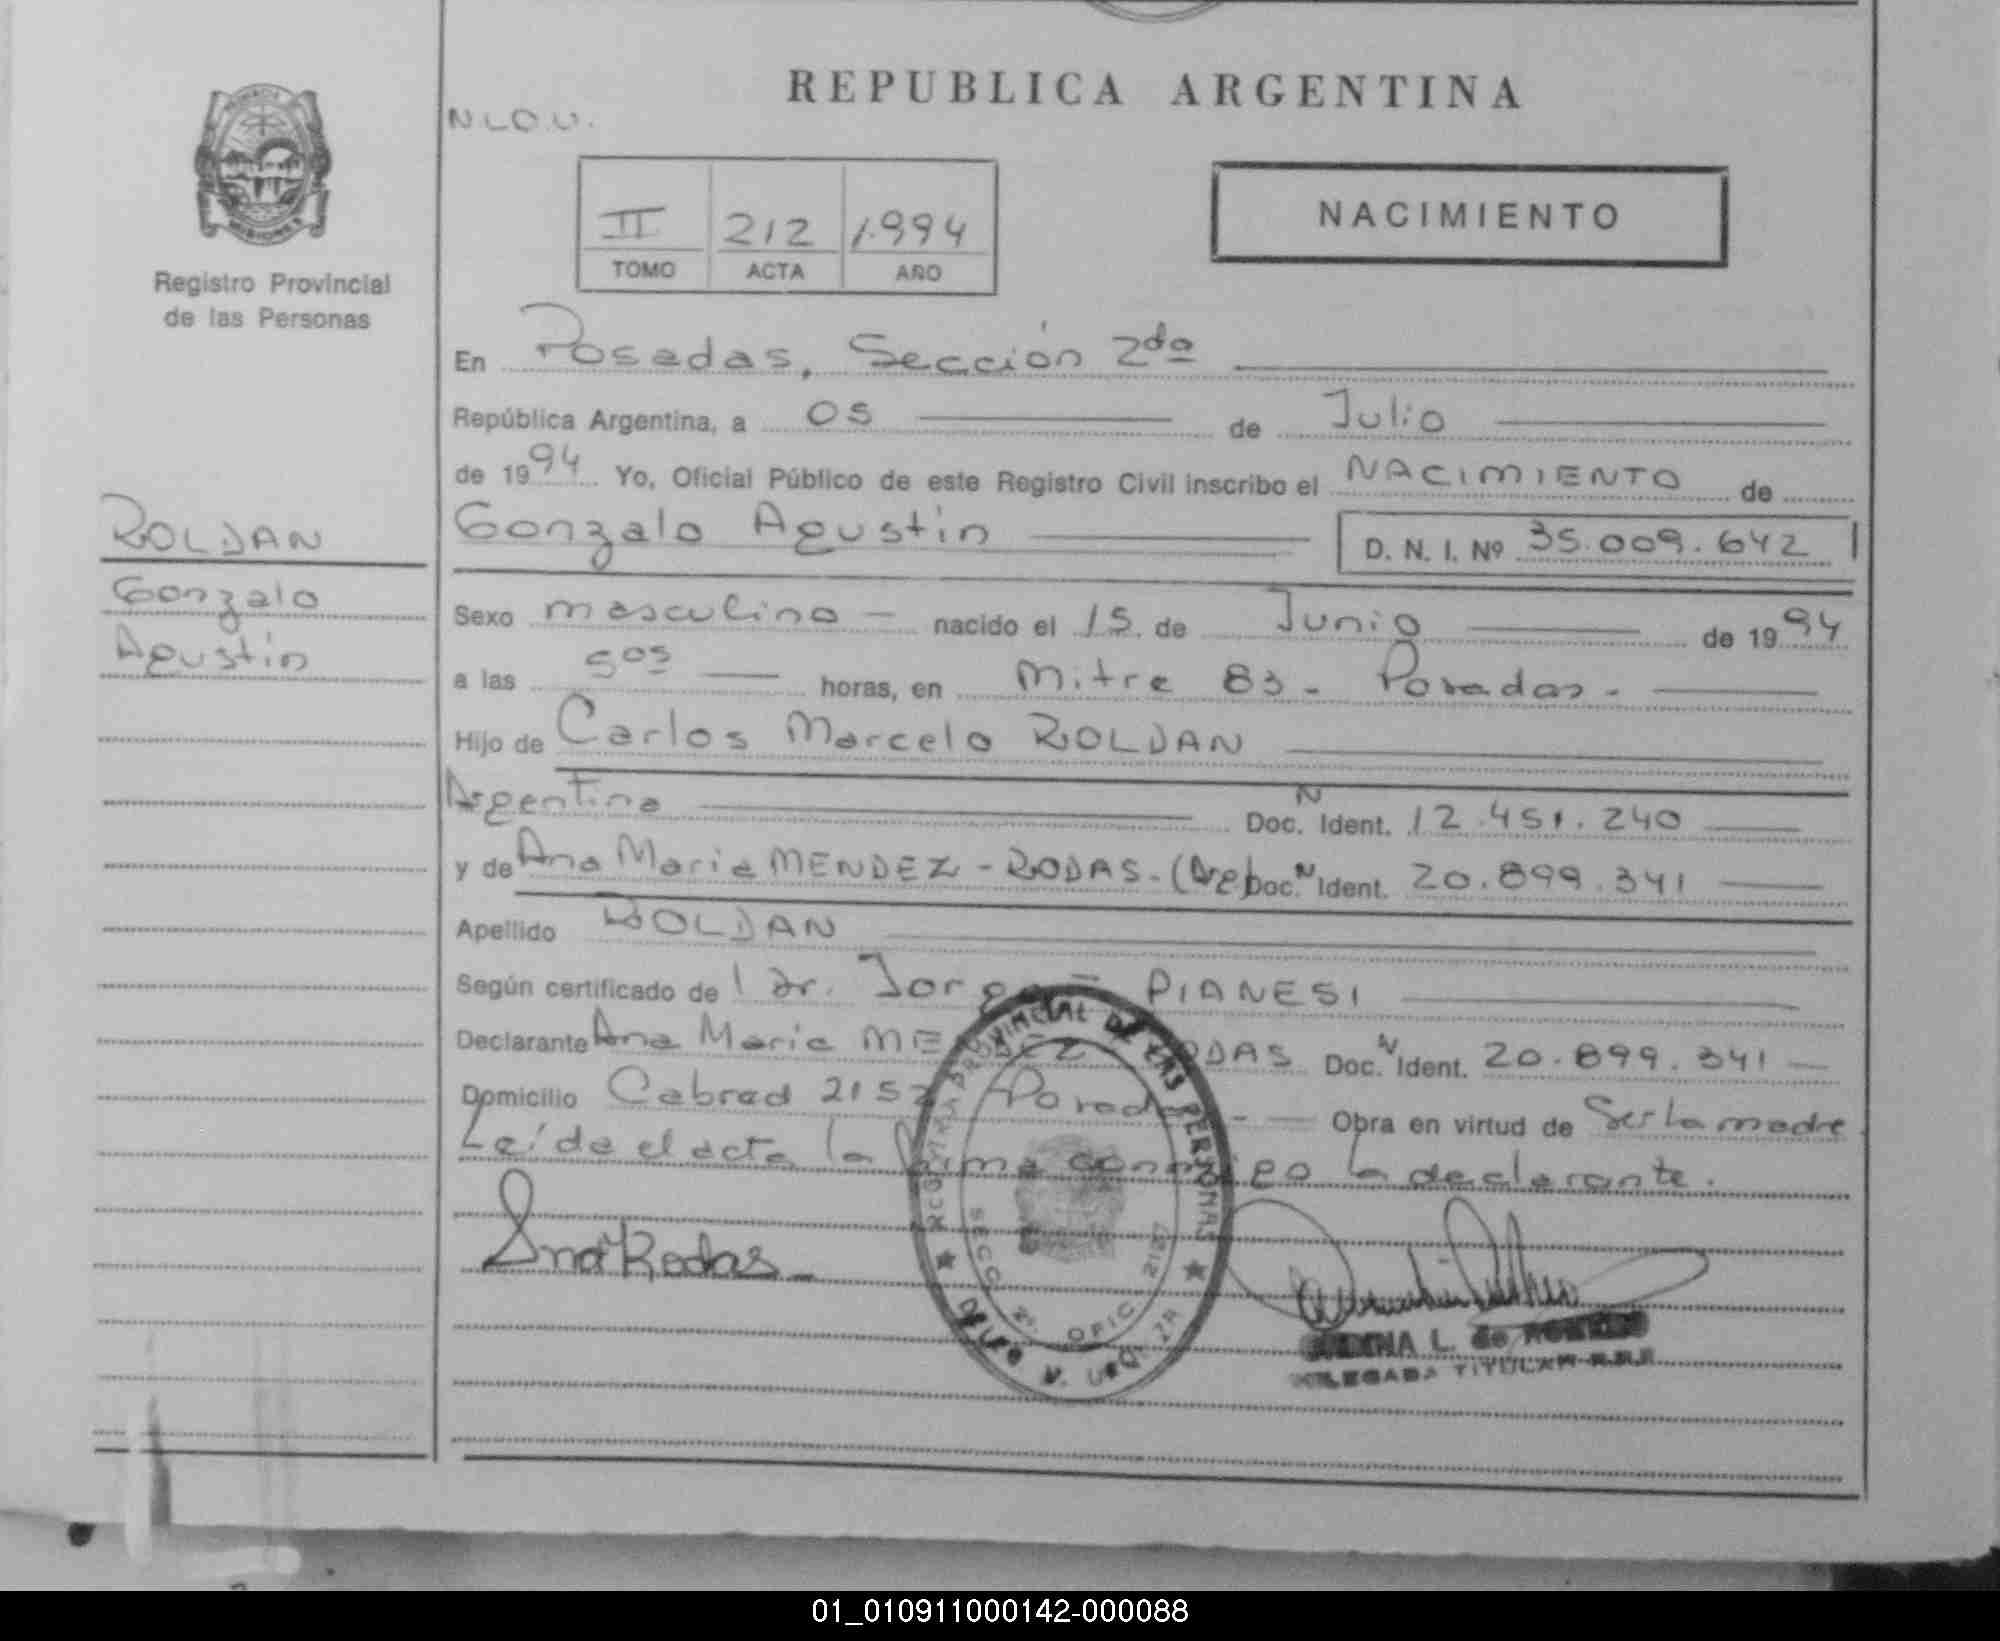 REPUBLICA ARGENTINA
N.L.O.U.
MISIONES
Registro Provincial
de las Personas
II 212 1.994
TOMO ACTA AÑO
NACIMIENTO
En Posadas, Sección 2da
República Argentina, a 05 de Julio
de 1994 Yo, Oficial Público de este Registro Civil inscribo el NACIMIENTO de
Gonzalo Agustín D. N. I. Nº 35.009.642
ROLDAN
Gonzalo
Agustín
Sexo masculino nacido el 15 de Junio de 1994
a las 5 05 horas, en Mitre 83 - Posadas.
Hijo de Carlos Marcelo ROLDAN
Argentina Doc. N Ident. 12.451.240
y de Ana Maria MENDEZ - RODAS. (Arg) Doc. N Ident. 20.899.341
Apellido ROLDAN
Según certificado de l Dr. Jorge PIANESI
Declarante Ana Maria MENDEZ RODAS Doc. N Ident. 20.899.341
Domicilio Cabred 2152 Posadas - Obra en virtud de Ser la madre
Leída el acta la firma conmigo la declarante.
Ana Rodas
REGISTRO PROVINCIAL DE LAS PERSONAS
SECC. 2ª OFIC. 2187
L. de
DELEGADA TITULAR R.P.P.
01_010911000142-000088